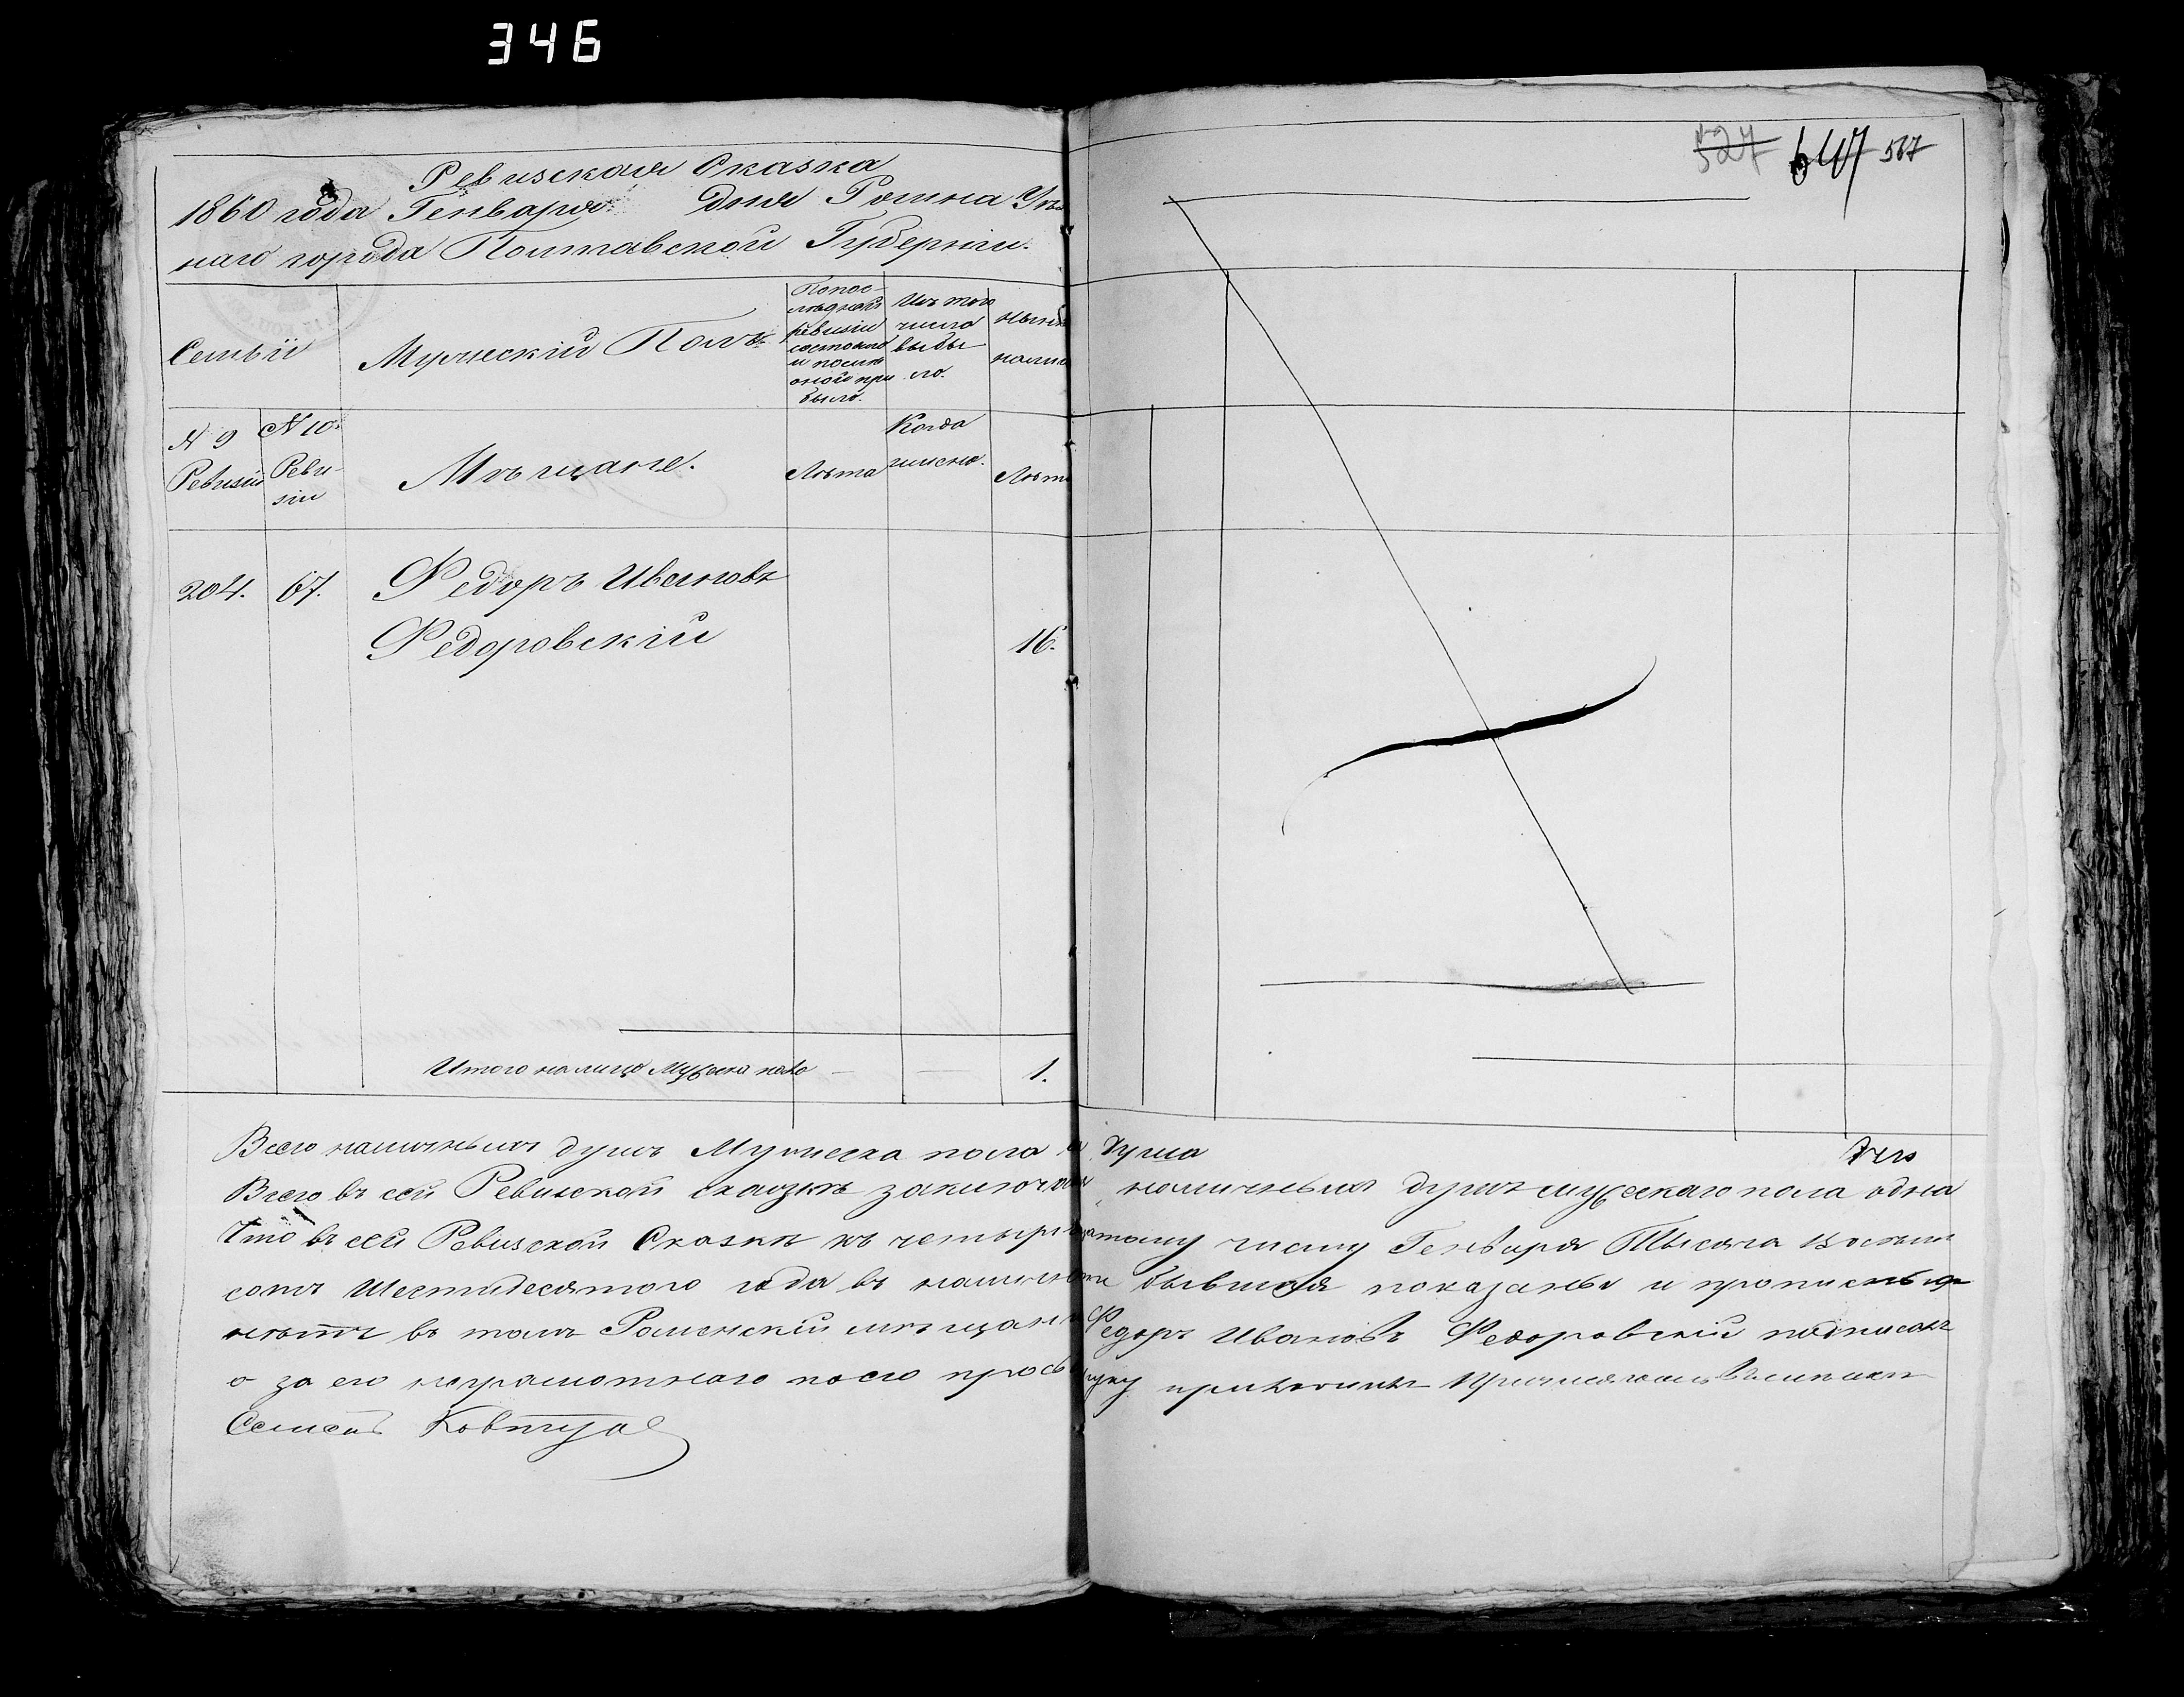 346
527 647 567
Ревизская Сказка
1860 года Генваря дня Ромна Уѣзд
наго города Полтавской Губерніи.
Семьи
Мужескій Полъ
Попос-
лѣдней
ревизіи
состояло
и послѣ
оной при
было.
Изъ того
числа
выбы
ло.
Нынѣ
налиц
N 9
Ревизіи
N 10.
Реви
зіи
Мѣщане.
Лѣта
Когда
именно.
Лѣта
204. 67. Федоръ Ивановъ
Федоровскій 16.
Итого налицо Мужеска пола — — 1.
Всего наличныхъ душъ Мужеска пола душа
Всего въ сей Ревизской сказкѣ заключается наличныхъ душъ мужескаго пола одна
Что въ сей Ревизской Сказкѣ къ четыр тому числу Генваря Тысяча восемь
сотъ Шестидесятого года въ налич бывшія показаны и прописныхъ
нѣтъ въ томъ Роменскій мѣщан Федоръ Ивановъ Федоровскій подписалъ
а за его неграмотнаго по его прось руку приложилъ
Семенъ Ковтуно